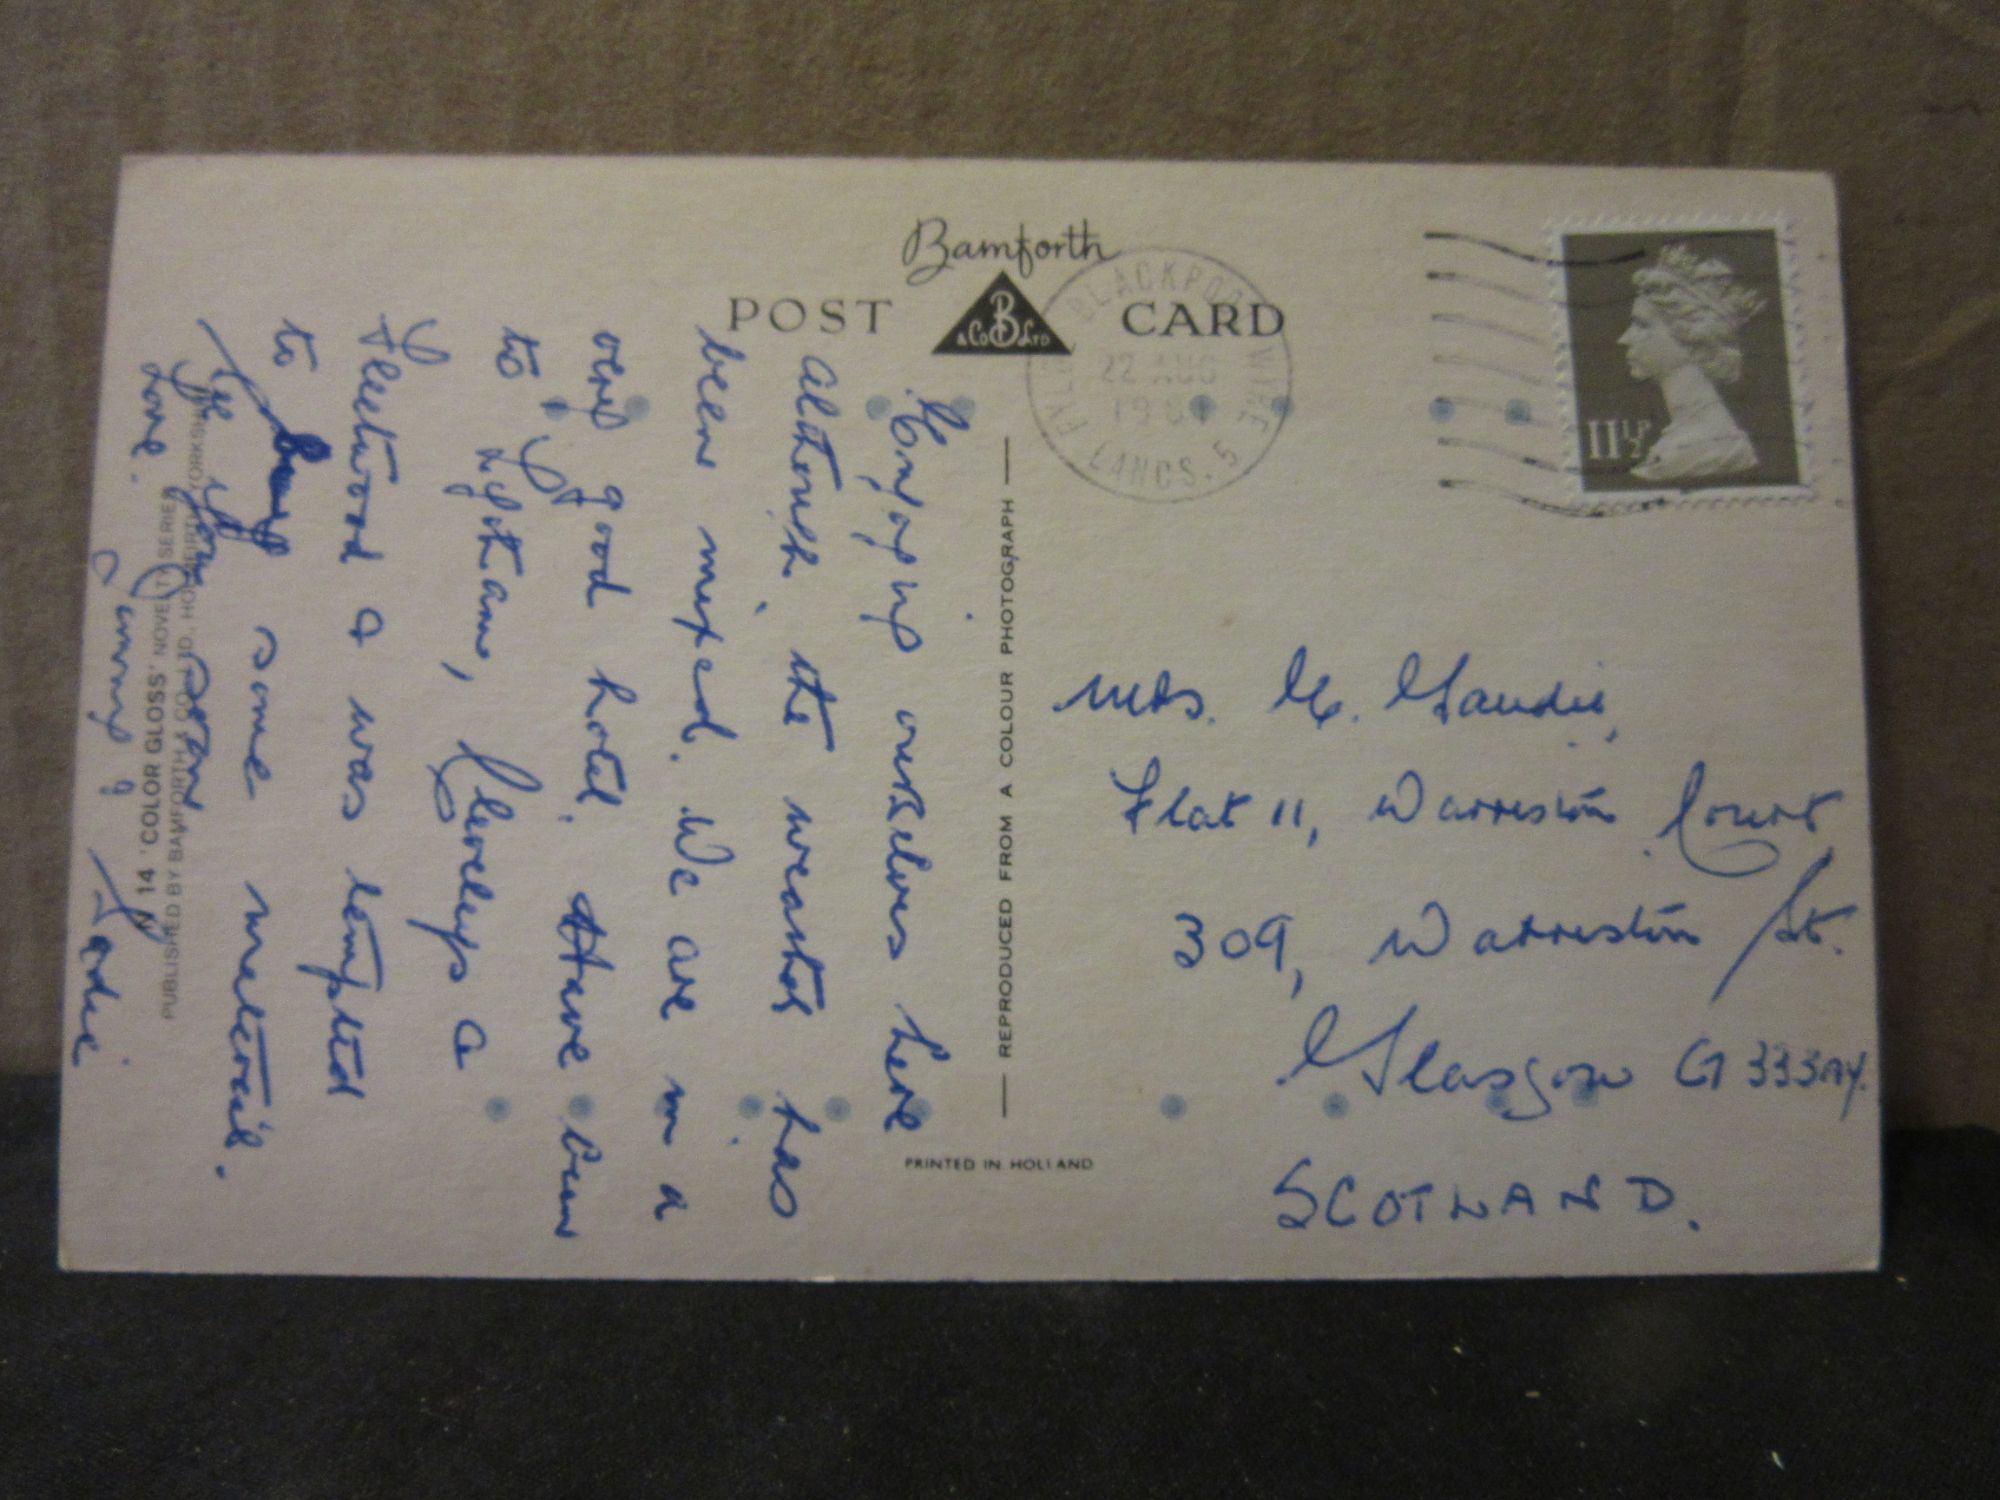 Bamforth
POST CARD
B
& Co Ltd
BLACKPOOL WYRE
22 AUG
LANCS. 5
11½P
Enjoying ourselves here
although the weather has
been mixed. We are in a
very good hotel. Have been
to Lytham, Cleveleys &
Fleetwood & was tempted
to buy some material.
See you soon
Love.
Jimmy & Sadie
Mrs. Gaudie,
Flat 11, Warriston Court
309, Warriston St.
Glasgow G33 3AY.
SCOTLAND.
REPRODUCED FROM A COLOUR PHOTOGRAPH
PRINTED IN HOLLAND
N 14 'COLOR GLOSS' NOVELTY SERIES
PUBLISHED BY BAMFORTH & CO. LTD., HOLMFIRTH, YORKSHIRE